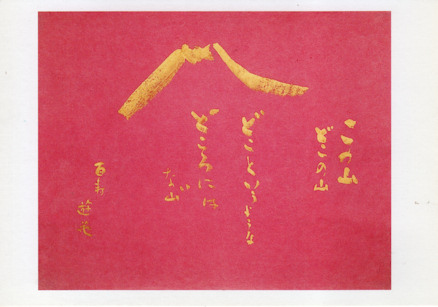 この山
どこの山
どこというような
どころには
ない山
百寿